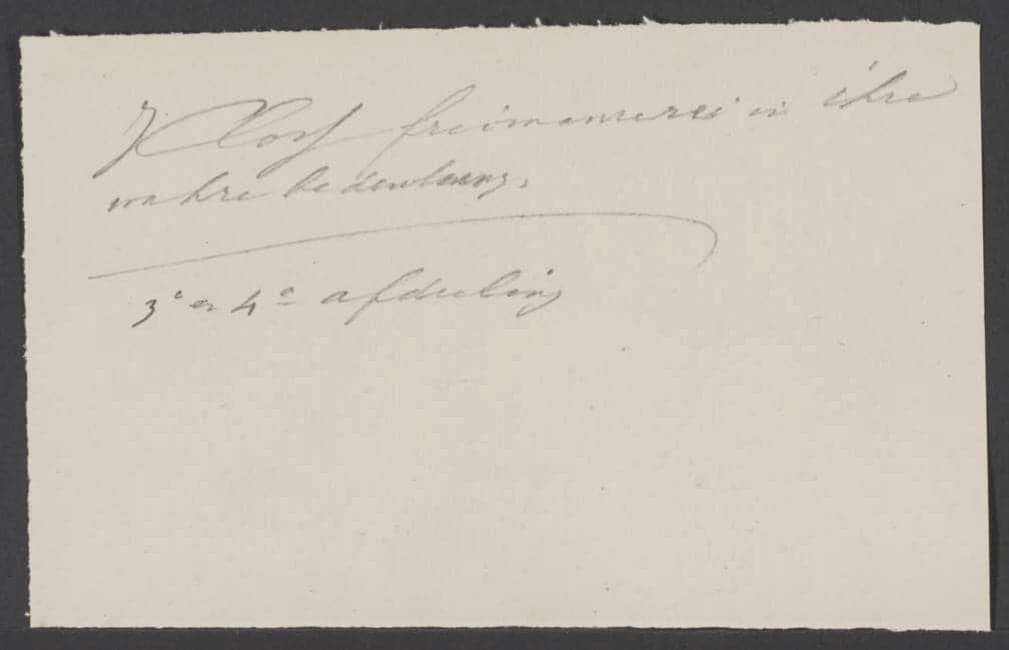 J Closs freimaurerei in ihre
wahre bedeutung.
3e en 4e afdeeling